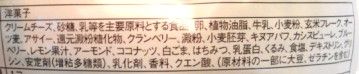 洋菓子
クリームチーズ、砂糖、乳等を主要原料とする食品、卵、植物油脂、牛乳、小麦粉、玄米フレーク、オー
ツ麦、アサイー、還元澱粉糖化物、クランベリー、澱粉、小麦胚芽、キヌアパフ、カシスピューレ、ブルー
ベリー、レモン果汁、アーモンド、ココナッツ、白ごま、はちみつ、乳蛋白、くるみ、食塩、デキストリン、
シーン、安定剤(増粘多糖類)、乳化剤、香料、クエン酸、(原材料の一部に大豆、ゼラチン